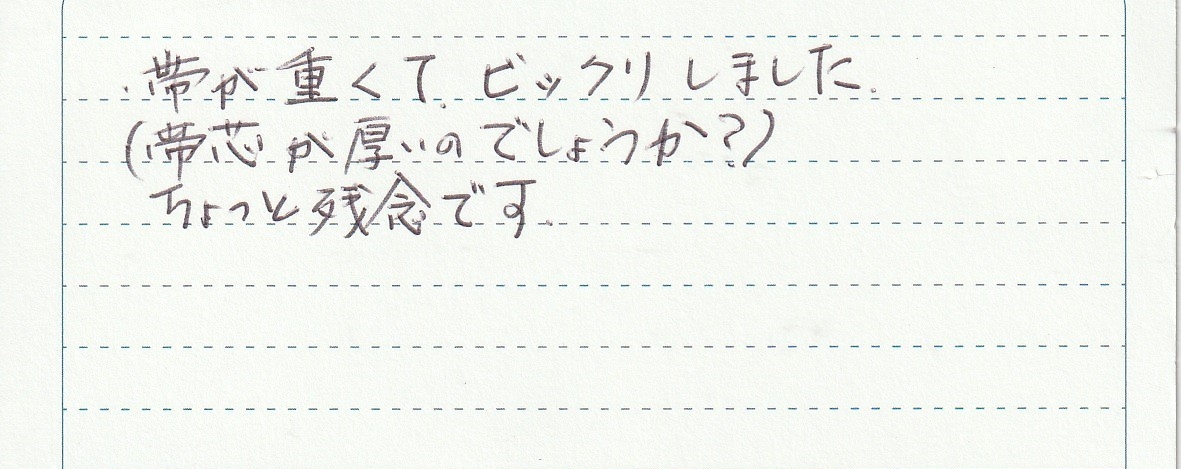 ・帯が重くて、ビックリしました。
(帯芯が厚いのでしょうか?)
ちょっと残念です。